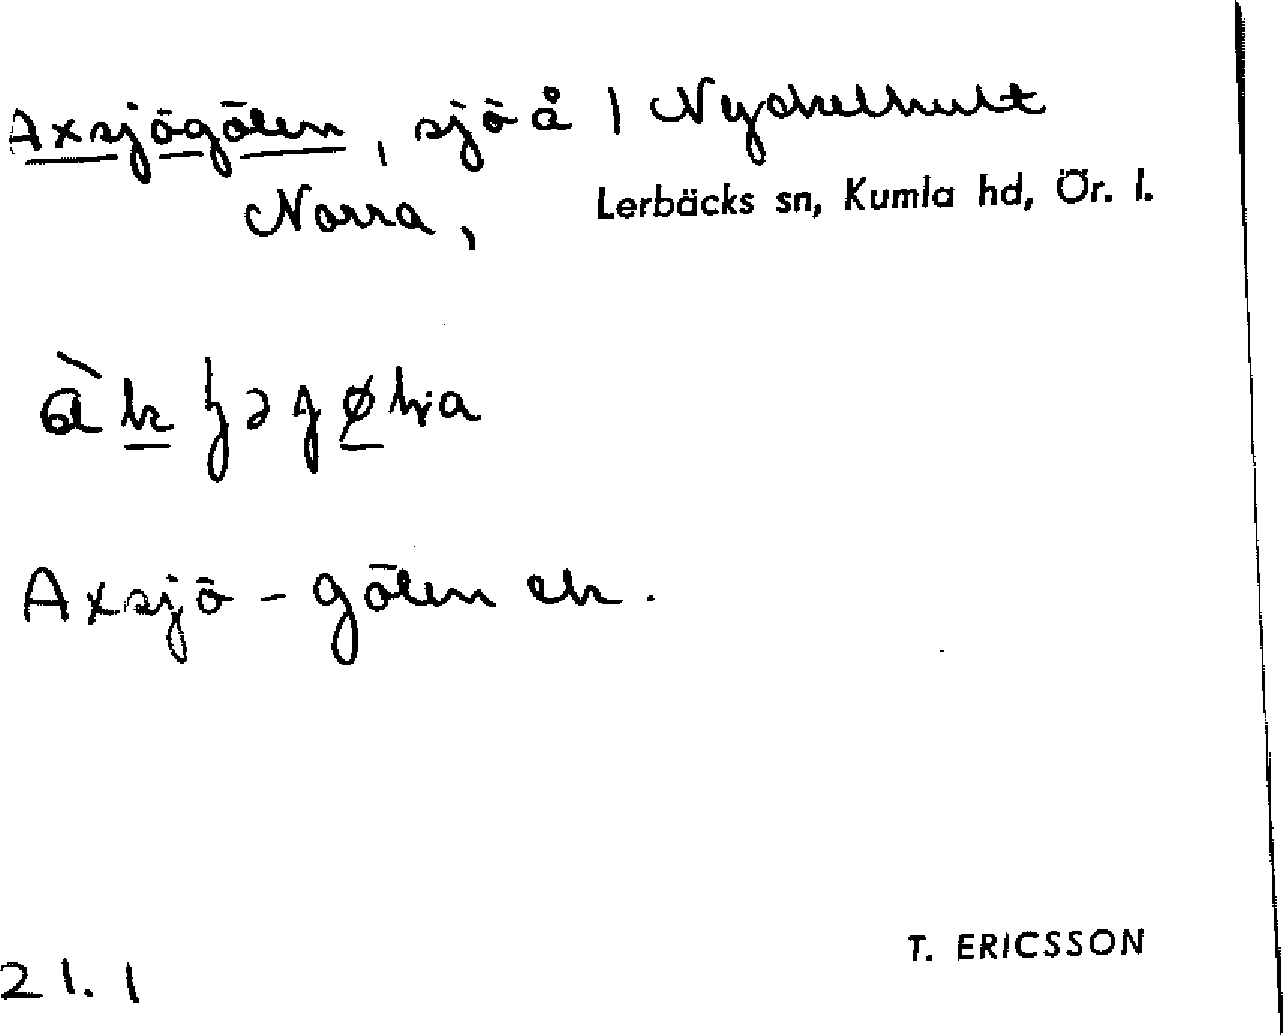 Axsjögölen, sjö å 1 Nyckelhult
Norra,
Lerbäcks sn, Kumla hd, Ör. l.
Axsjö - gölen ek.
T. ERICSSON
21. 1